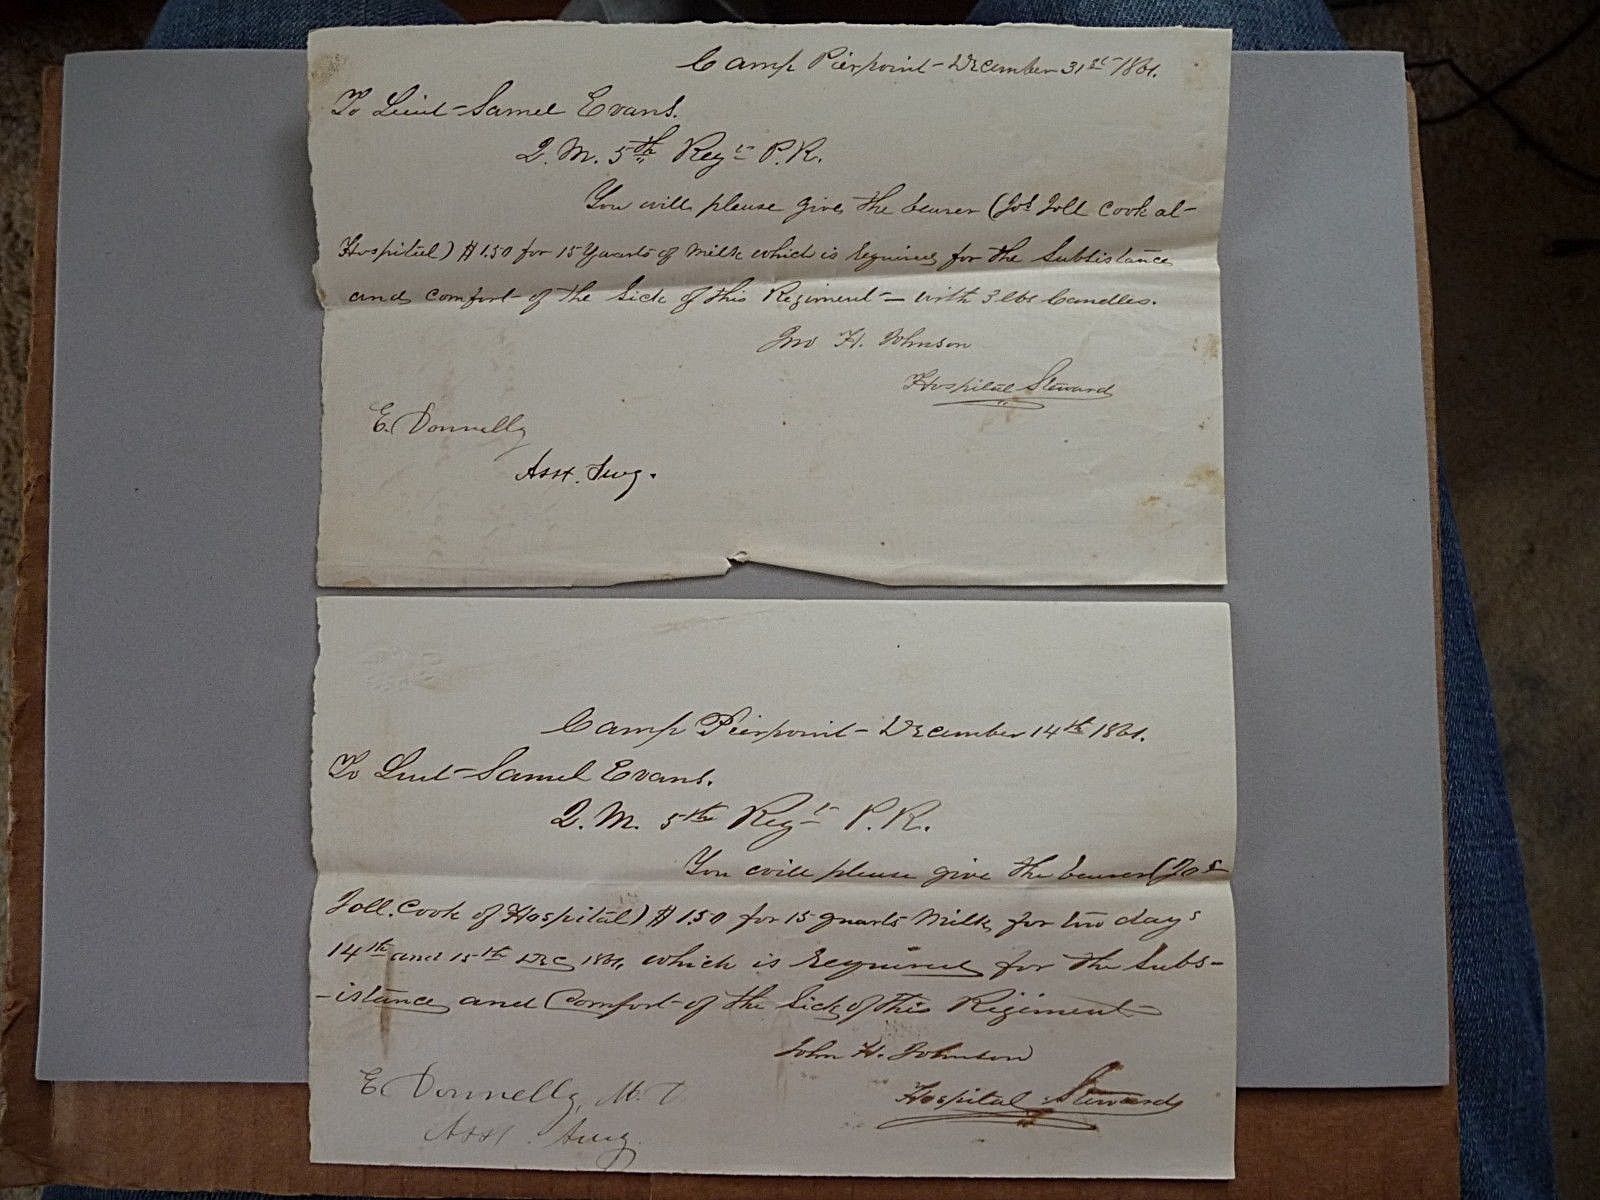 Camp Pierpoint - December 31st 1861.
To Lieut - Samel Evans.
Q. M. 5th Regt P. R.
You will please give the bearer (Jos Joll Cook at -
Hospital) $1.50 for 15 Quarts of Milk which is required for the Subsistance
and comfort of the Sick of this Regiment - with 3 lbs Candles.
Jno H. Johnson
Hospital Steward
E. Donnelly
Asst. Surg.
Camp Pierpoint - December 14th 1861.
To Leut - Samuel Evans.
Q. M. 5th Regt P. R.
You will please give the bearer (Jos
Joll. Cook of Hospital) $1.50 for 15 quarts Milk for two days
14th and 15th Dec 1861, which is required for the Subs-
-istance and Comfort of the Sick of this Regiment
John H. Johnson
Hospital Steward
E Donnelly, M. D.
Asst. Surg.